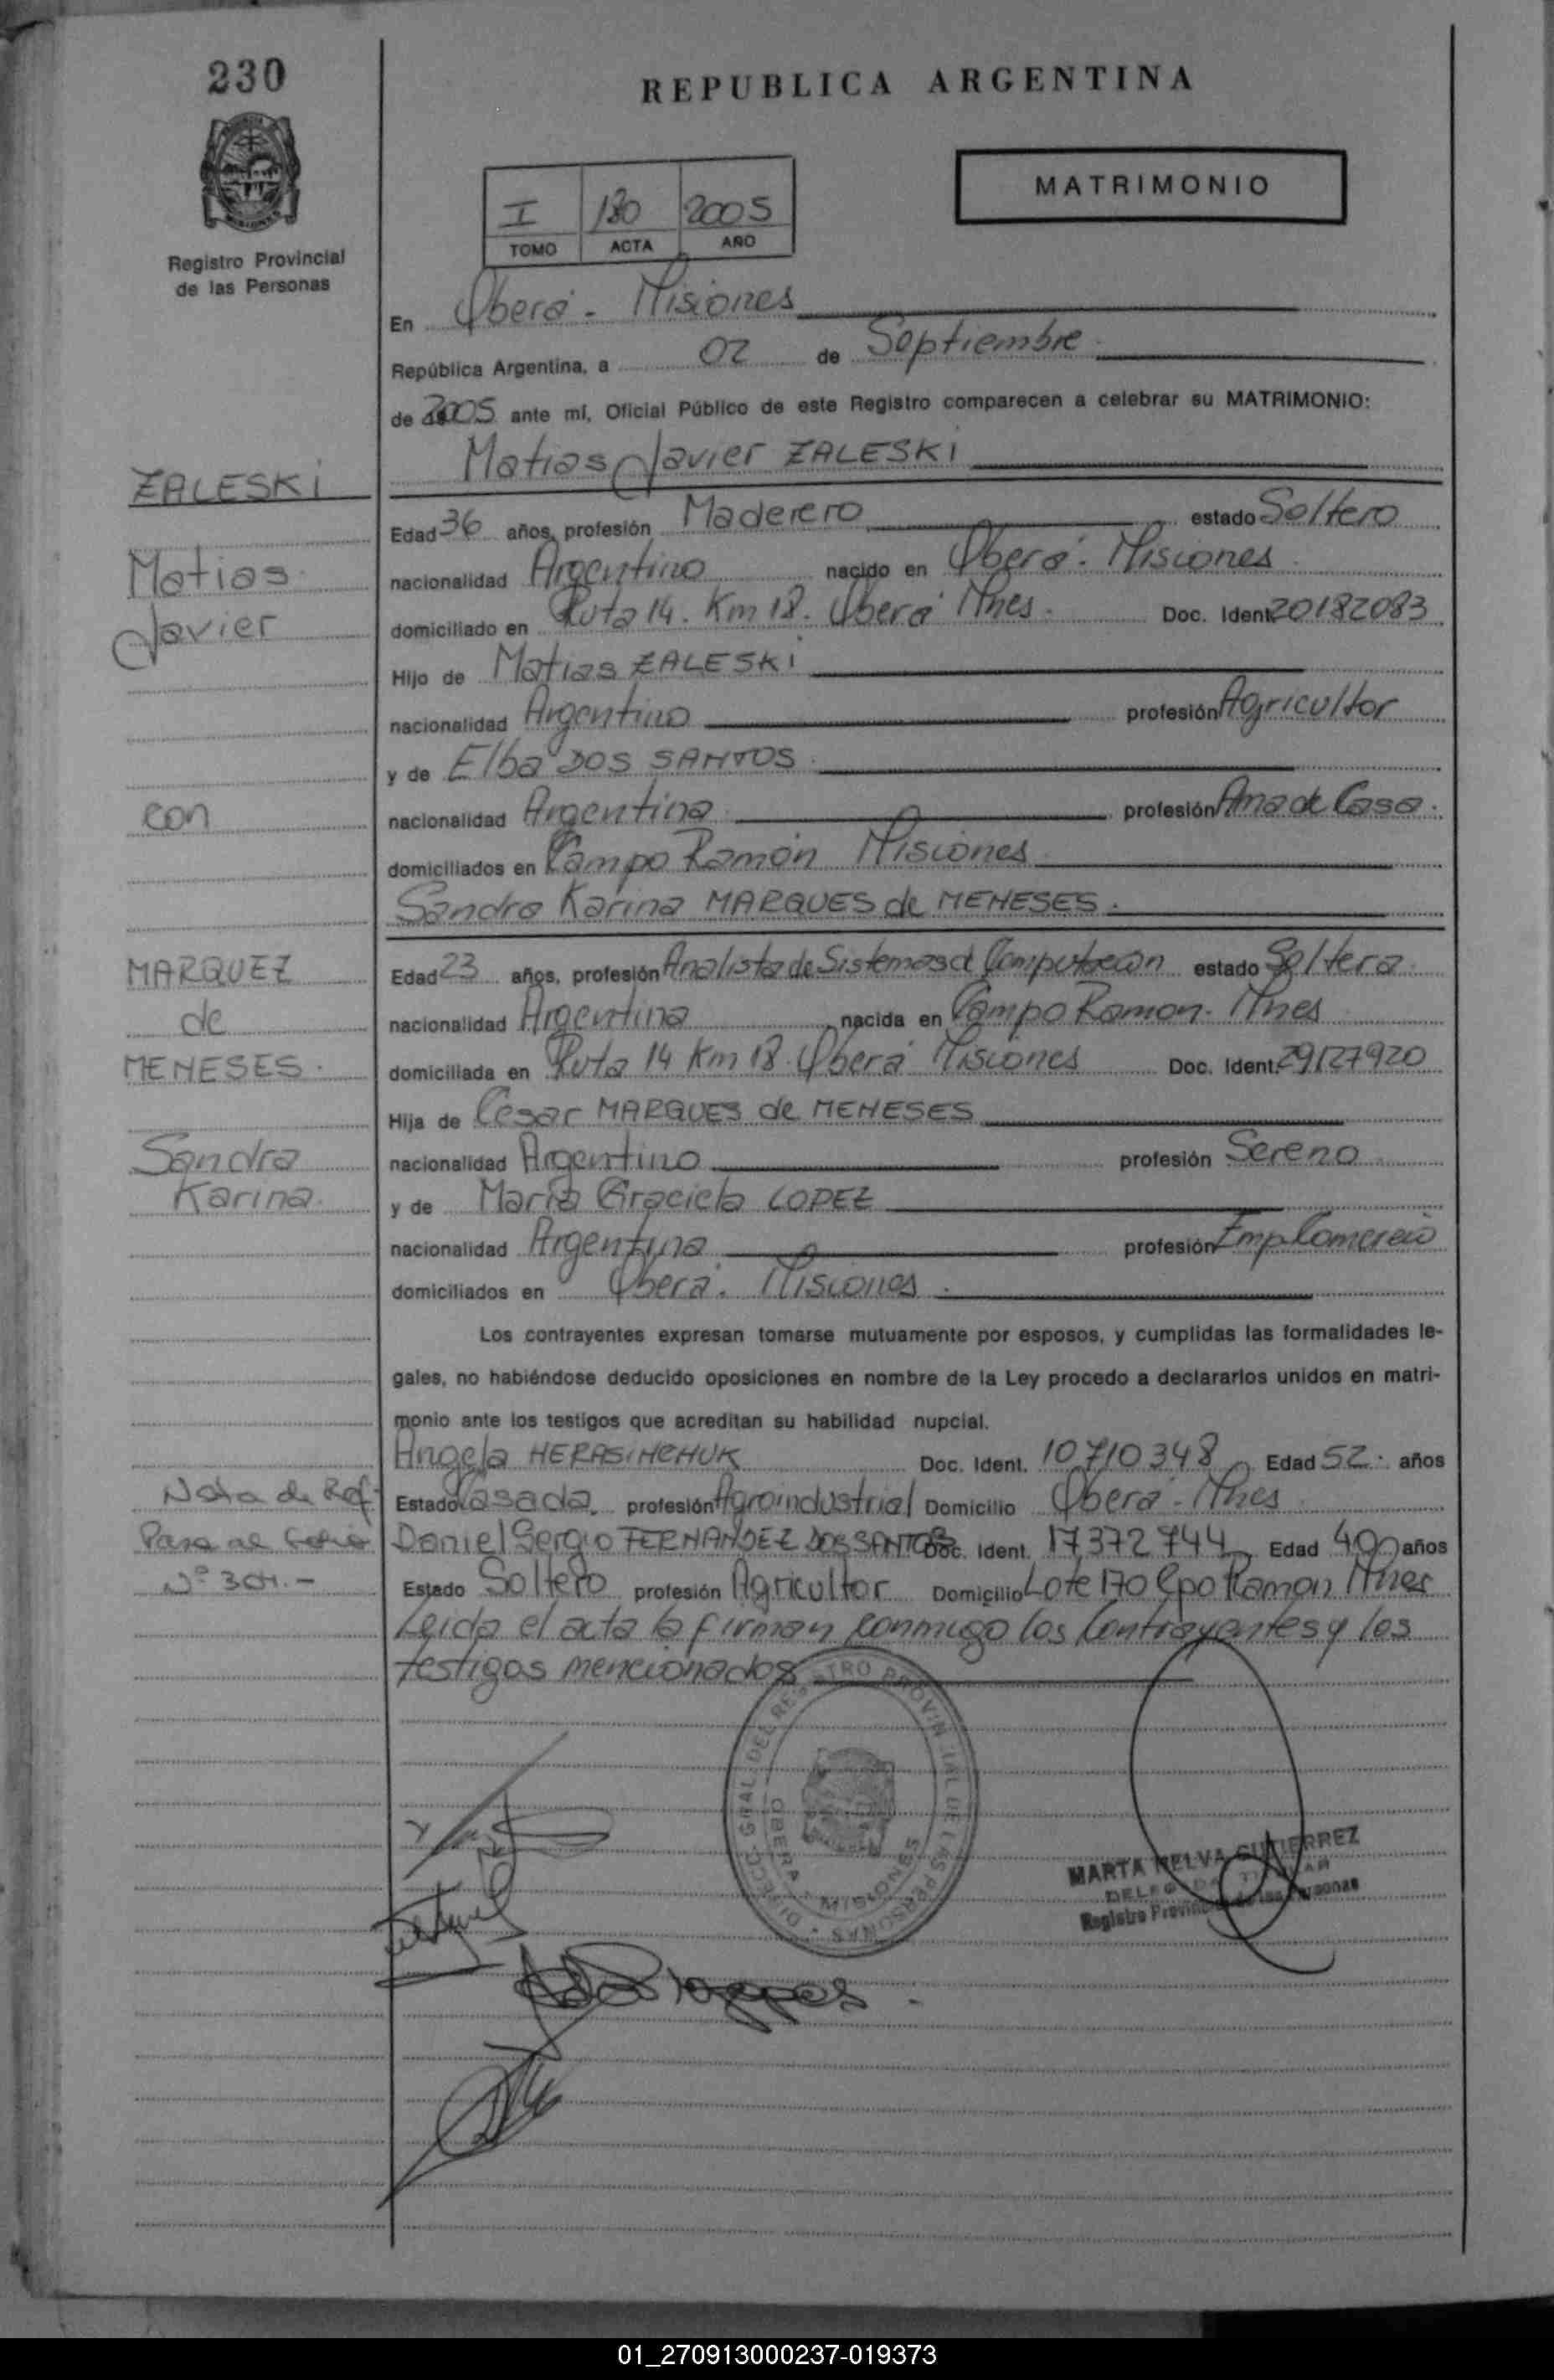 230
REPUBLICA ARGENTINA
MATRIMONIO
I 180 2005
TOMO ACTA AÑO
Registro Provincial
de las Personas
En Oberá - Misiones
República Argentina, a 02 de Septiembre
de 2005 ante mí, Oficial Público de este Registro comparecen a celebrar su MATRIMONIO:
Matias Javier ZALESKI
ZALESKI
Matias
Javier
con
MARQUEZ
de
MENESES.
Sandra
Karina.
Edad 36 años, profesión Maderero estado Soltero
nacionalidad Argentino nacido en Oberá. Misiones
domiciliado en Ruta 14. Km 18. Oberá Mnes. Doc. Ident. 20182083
Hijo de Matias ZALESKI
nacionalidad Argentino profesión Agricultor
y de Elba DOS SANTOS
nacionalidad Argentina profesión Ama de Casa.
domiciliados en Campo Ramón Misiones
Sandra Karina MARQUES de MENESES.
Edad 23 años, profesión Analista de Sistemas d Computación estado Soltera.
nacionalidad Argentina nacida en Campo Ramon. Mnes
domiciliada en Ruta 14 Km 18. Oberá Misiones Doc. Ident. 29127920
Hija de Cesar MARQUES de MENESES
nacionalidad Argentino profesión Sereno
y de María Graciela LOPEZ
nacionalidad Argentina profesión Emp Comercio
domiciliados en Oberá. Misiones.
Los contrayentes expresan tomarse mutuamente por esposos, y cumplidas las formalidades le-
gales, no habiéndose deducido oposiciones en nombre de la Ley procedo a declararlos unidos en matri-
monio ante los testigos que acreditan su habilidad nupcial.
Angela HERASIMCHUK Doc. Ident. 10710348 Edad 52. años
Estado Casada. profesión Agroindustrial Domicilio Oberá - Mnes
Daniel Sergio FERNANDEZ DOS SANTOS Doc. Ident. 17372744 Edad 40 años
Estado Soltero profesión Agricultor Domicilio Lote 170 Cpo Ramon Mnes
Leida el acta la firman conmigo los Contrayentes y los
testigos mencionados
Nota de Ref.
Pasa al folio
Nº 304.-
DIRECC. GRAL. DEL REGISTRO PROVINCIAL DE LAS PERSONAS
OBERA MISIONES
MARTA NELVA GUTIERREZ
DELEGADA TITULAR
Registro Provincial de las Personas
01_270913000237-019373